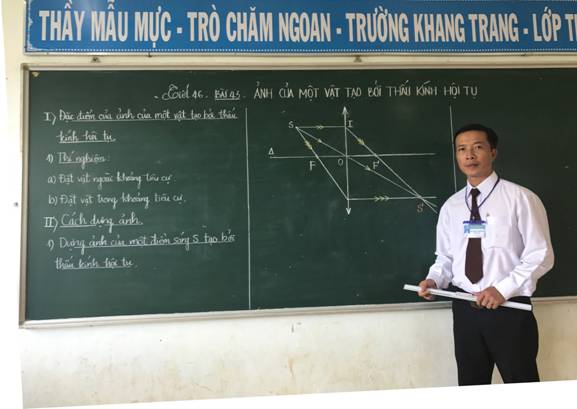 THẦY MẪU MỰC - TRÒ CHĂM NGOAN - TRƯỜNG KHANG TRANG - LỚP
Tiết 46. Bài 43. ẢNH CỦA MỘT VẬT TẠO BỞI THẤU KÍNH HỘI TỤ
I) Đặc điểm của ảnh của một vật tạo bởi thấu
kính hội tụ.
1) Thí nghiệm:
a) Đặt vật ngoài khoảng tiêu cự.
b) Đặt vật trong khoảng tiêu cự.
II) Cách dựng ảnh.
1) Dựng ảnh của một điểm sáng S tạo bởi
thấu kính hội tụ.
S
I
Δ
F
O
F'
S'